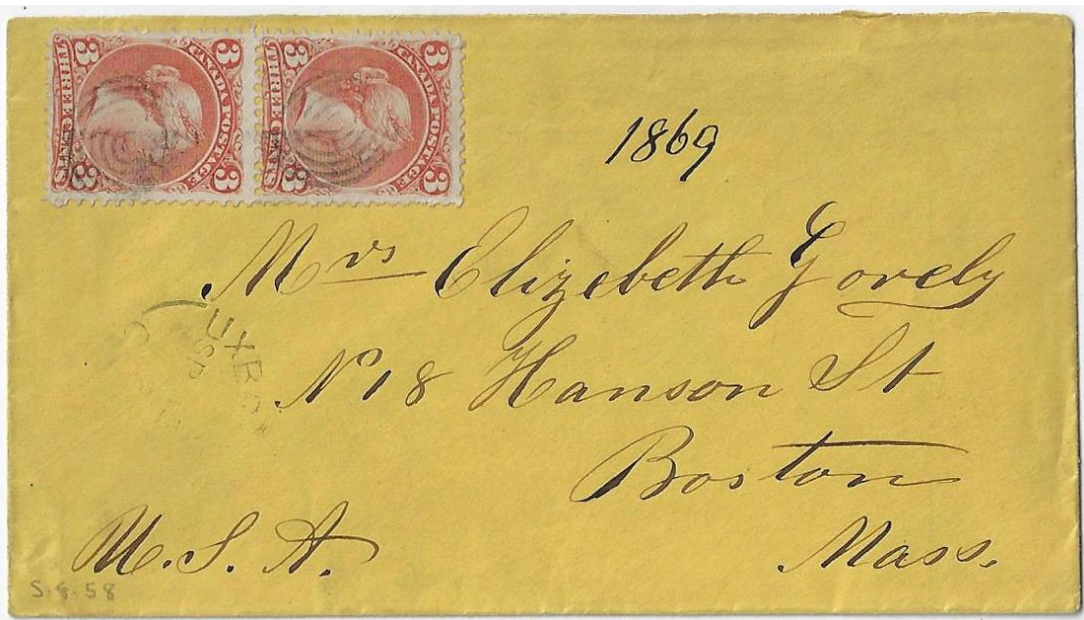 3 CANADA POSTAGE 3
3 THREE CENTS 3
3 CANADA POSTAGE 3
3 THREE CENTS 3
1869
Mrs Elizebeth Govely
No 18 Hanson St
Boston
Mass.
U.S.A.
UXB
S.G.58